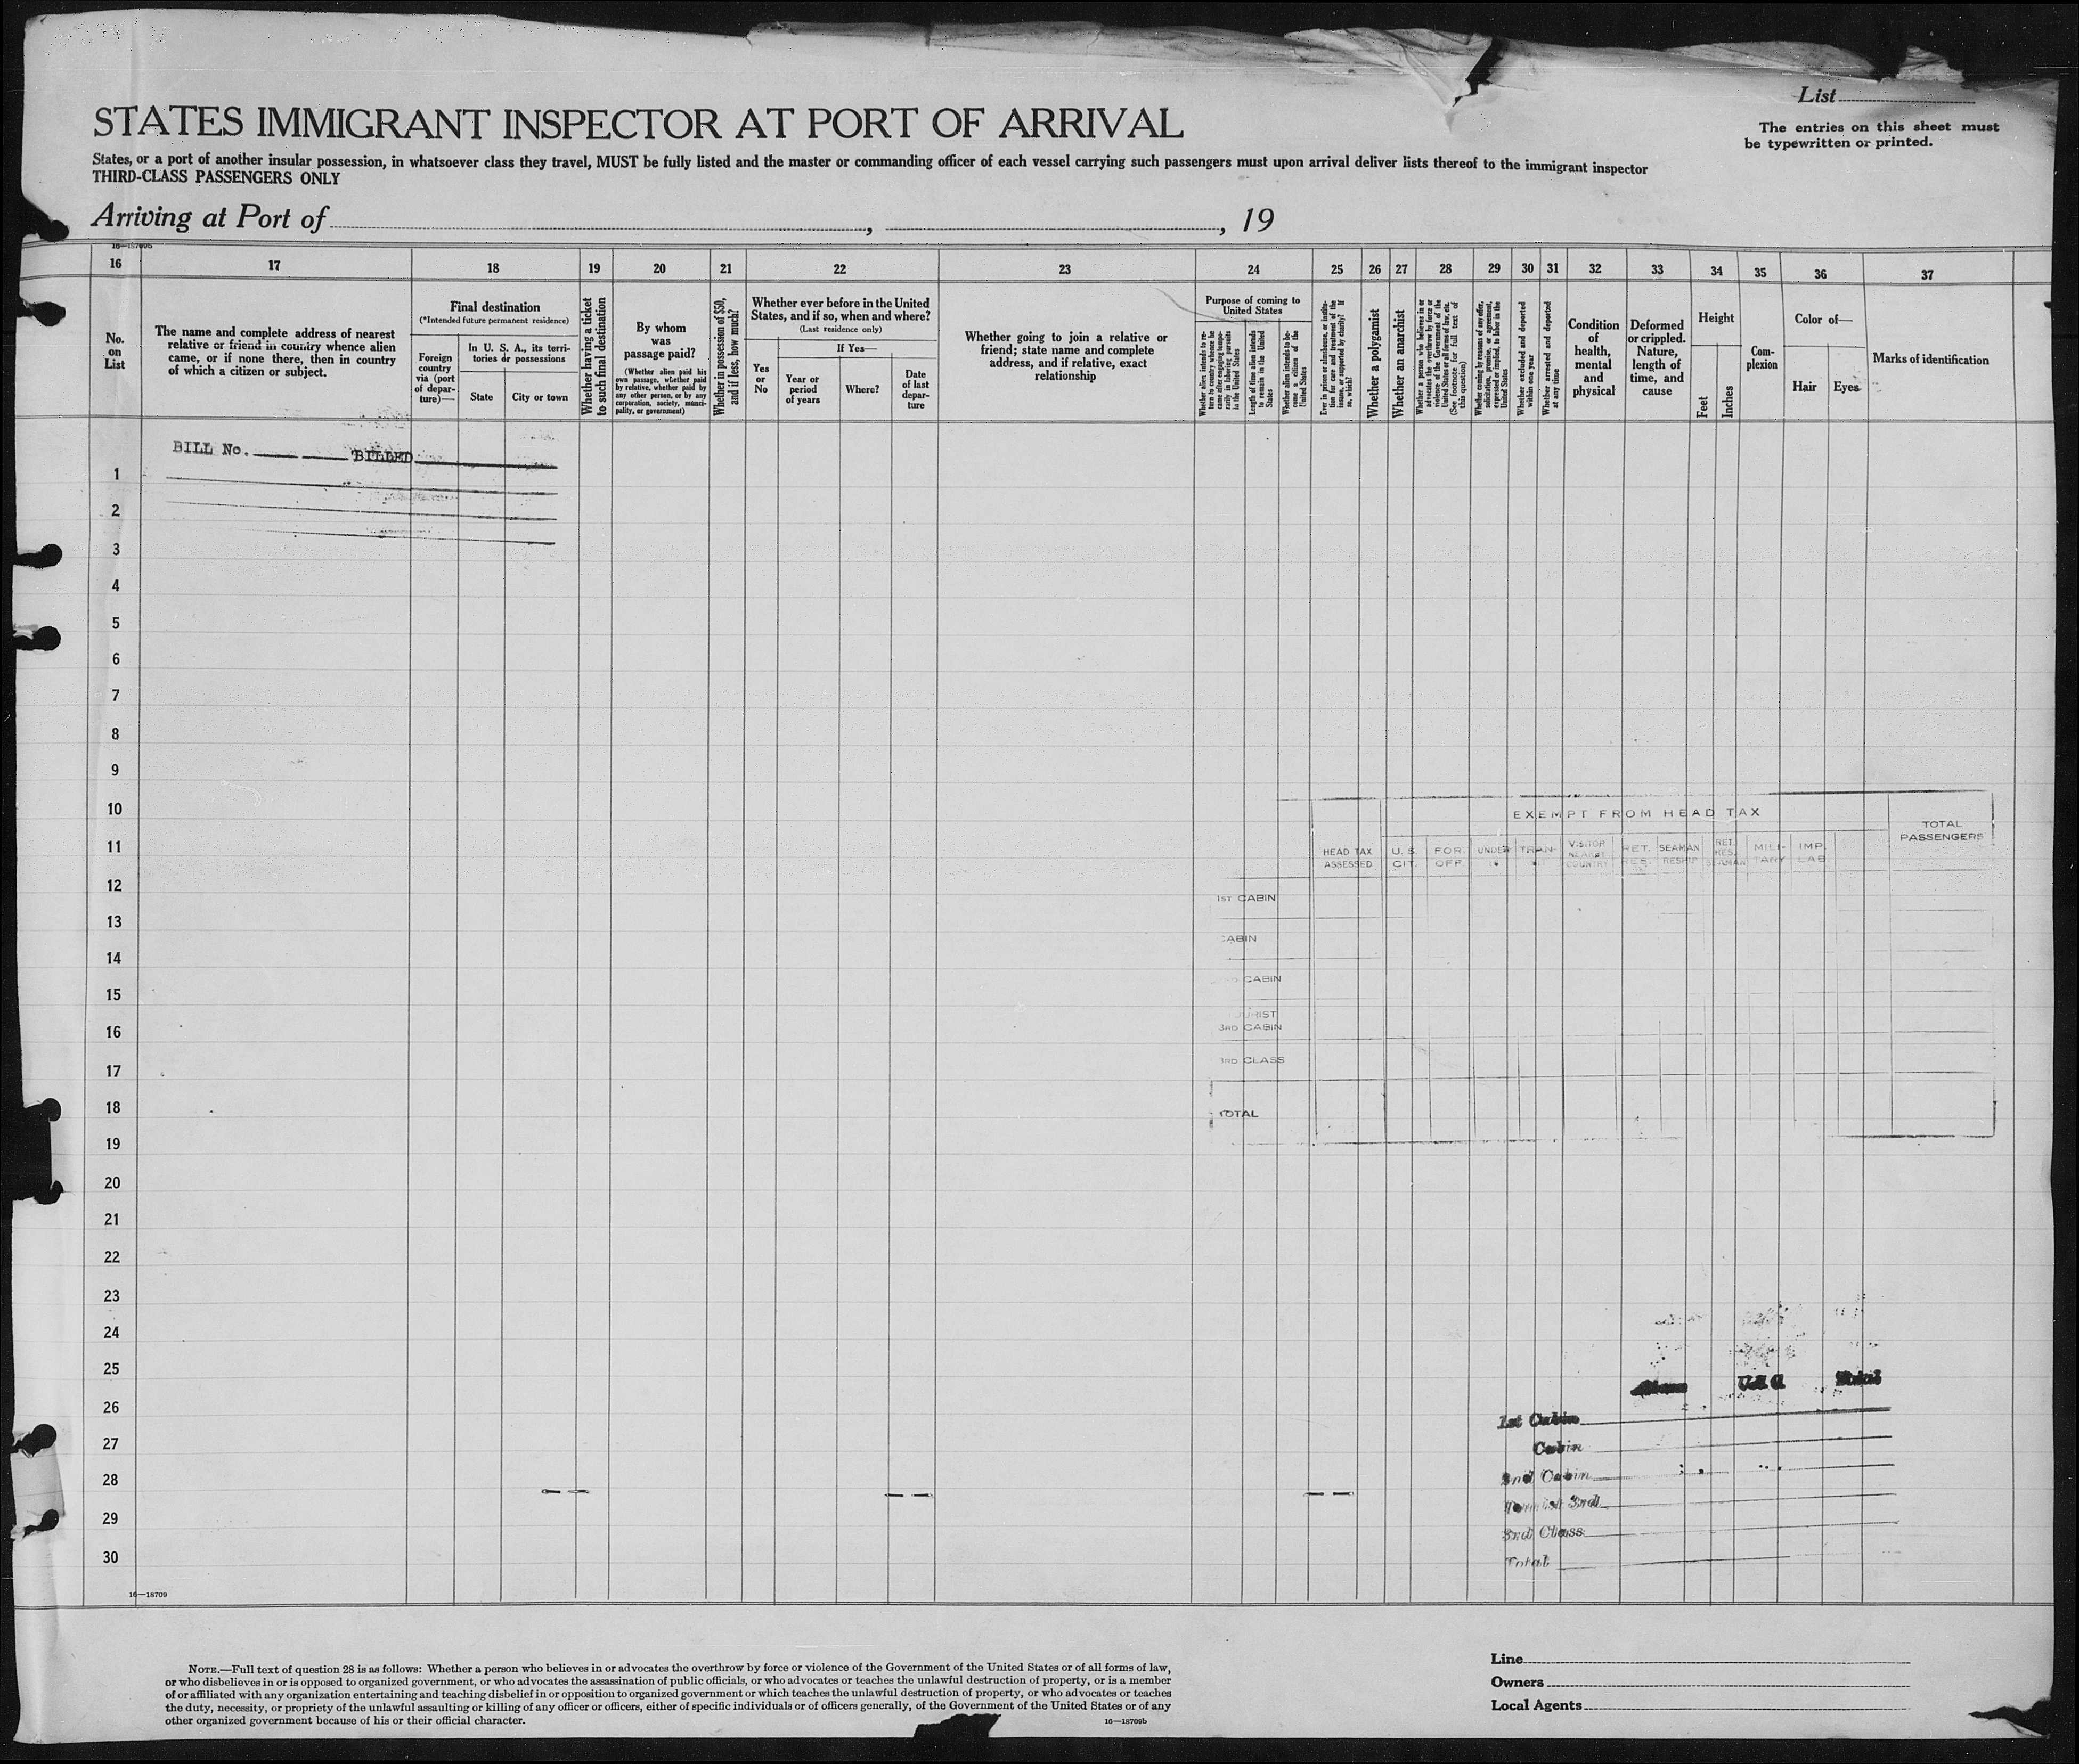 List
STATES IMMIGRANT INSPECTOR AT PORT OF ARRIVAL
The entries on this sheet must
be typewritten or printed.
States, or a port of another insular possession, in whatsoever class they travel, MUST be fully listed and the master or commanding officer of each vessel carrying such passengers must upon arrival deliver lists thereof to the immigrant inspector
THIRD-CLASS PASSENGERS ONLY
Arriving at Port of , , 19
16—18709b
16 17 18 19 20 21 22 23 24 25 26 27 28 29 30 31 32 33 34 35 36 37
No.
on
List
The name and complete address of nearest
relative or friend in country whence alien
came, or if none there, then in country
of which a citizen or subject.
Final destination
(*Intended future permanent residence)
Foreign
country
via (port
of depar-
ture)—
In U. S. A., its terri-
tories or possessions
State
City or town
Whether having a ticket
to such final destination
By whom
was
passage paid?
(Whether alien paid his
own passage, whether paid
by relative, whether paid by
any other person, or by any
corporation, society, munici-
pality, or government)
Whether in possession of $50,
and if less, how much?
Whether ever before in the United
States, and if so, when and where?
(Last residence only)
Yes
or
No
If Yes—
Year or
period
of years
Where?
Date
of last
depar-
ture
Whether going to join a relative or
friend; state name and complete
address, and if relative, exact
relationship
Purpose of coming to
United States
Whether alien intends to re-
turn to country whence he
came after engaging tempo-
rarily in laboring pursuits
in the United States
Length of time alien intends
to remain in the United
States
Whether alien intends to be-
come a citizen of the
United States
Ever in prison or almshouse, or institu-
tion for care and treatment of the
insane, or supported by charity? If
so, which?
Whether a polygamist
Whether an anarchist
Whether a person who believes in or
advocates the overthrow by force or
violence of the Government of the
United States or all forms of law, etc.
(See footnote for full text of
this question)
Whether coming by reasons of any offer,
solicitation, promise, or agreement,
expressed or implied, to labor in the
United States
Whether excluded and deported
within one year
Whether arrested and deported
at any time
Condition
of
health,
mental
and
physical
Deformed
or crippled.
Nature,
length of
time, and
cause
Height
Feet
Inches
Com-
plexion
Color of—
Hair
Eyes
Marks of identification
BILL No. BILLED
1
2
3
4
5
6
7
8
9
10
11
12
13
14
15
16
17
18
19
20
21
22
23
24
25
26
27
28
29
30
EXEMPT FROM HEAD TAX
HEAD TAX
ASSESSED
U. S.
CIT.
FOR.
OFF.
UNDER
TRAN-
VISITOR
NEARBY
COUNTRY
RET.
RES.
SEAMAN
RESHIP
RET.
RES.
SEAMAN
MILI-
TARY
IMP.
LAB
TOTAL
PASSENGERS
1ST CABIN
CABIN
CABIN
TOURIST
3RD CABIN
3RD CLASS
TOTAL
Total
1st Cabin
Cabin
2nd Cabin
3rd
3rd Class
Total
16—18709
NOTE.—Full text of question 28 is as follows: Whether a person who believes in or advocates the overthrow by force or violence of the Government of the United States or of all forms of law,
or who disbelieves in or is opposed to organized government, or who advocates the assassination of public officials, or who advocates or teaches the unlawful destruction of property, or is a member
of or affiliated with any organization entertaining and teaching disbelief in or opposition to organized government or which teaches the unlawful destruction of property, or who advocates or teaches
the duty, necessity, or propriety of the unlawful assaulting or killing of any officer or officers, either of specific individuals or of officers generally, of the Government of the United States or of any
other organized government because of his or their official character.
16—18709b
Line
Owners
Local Agents